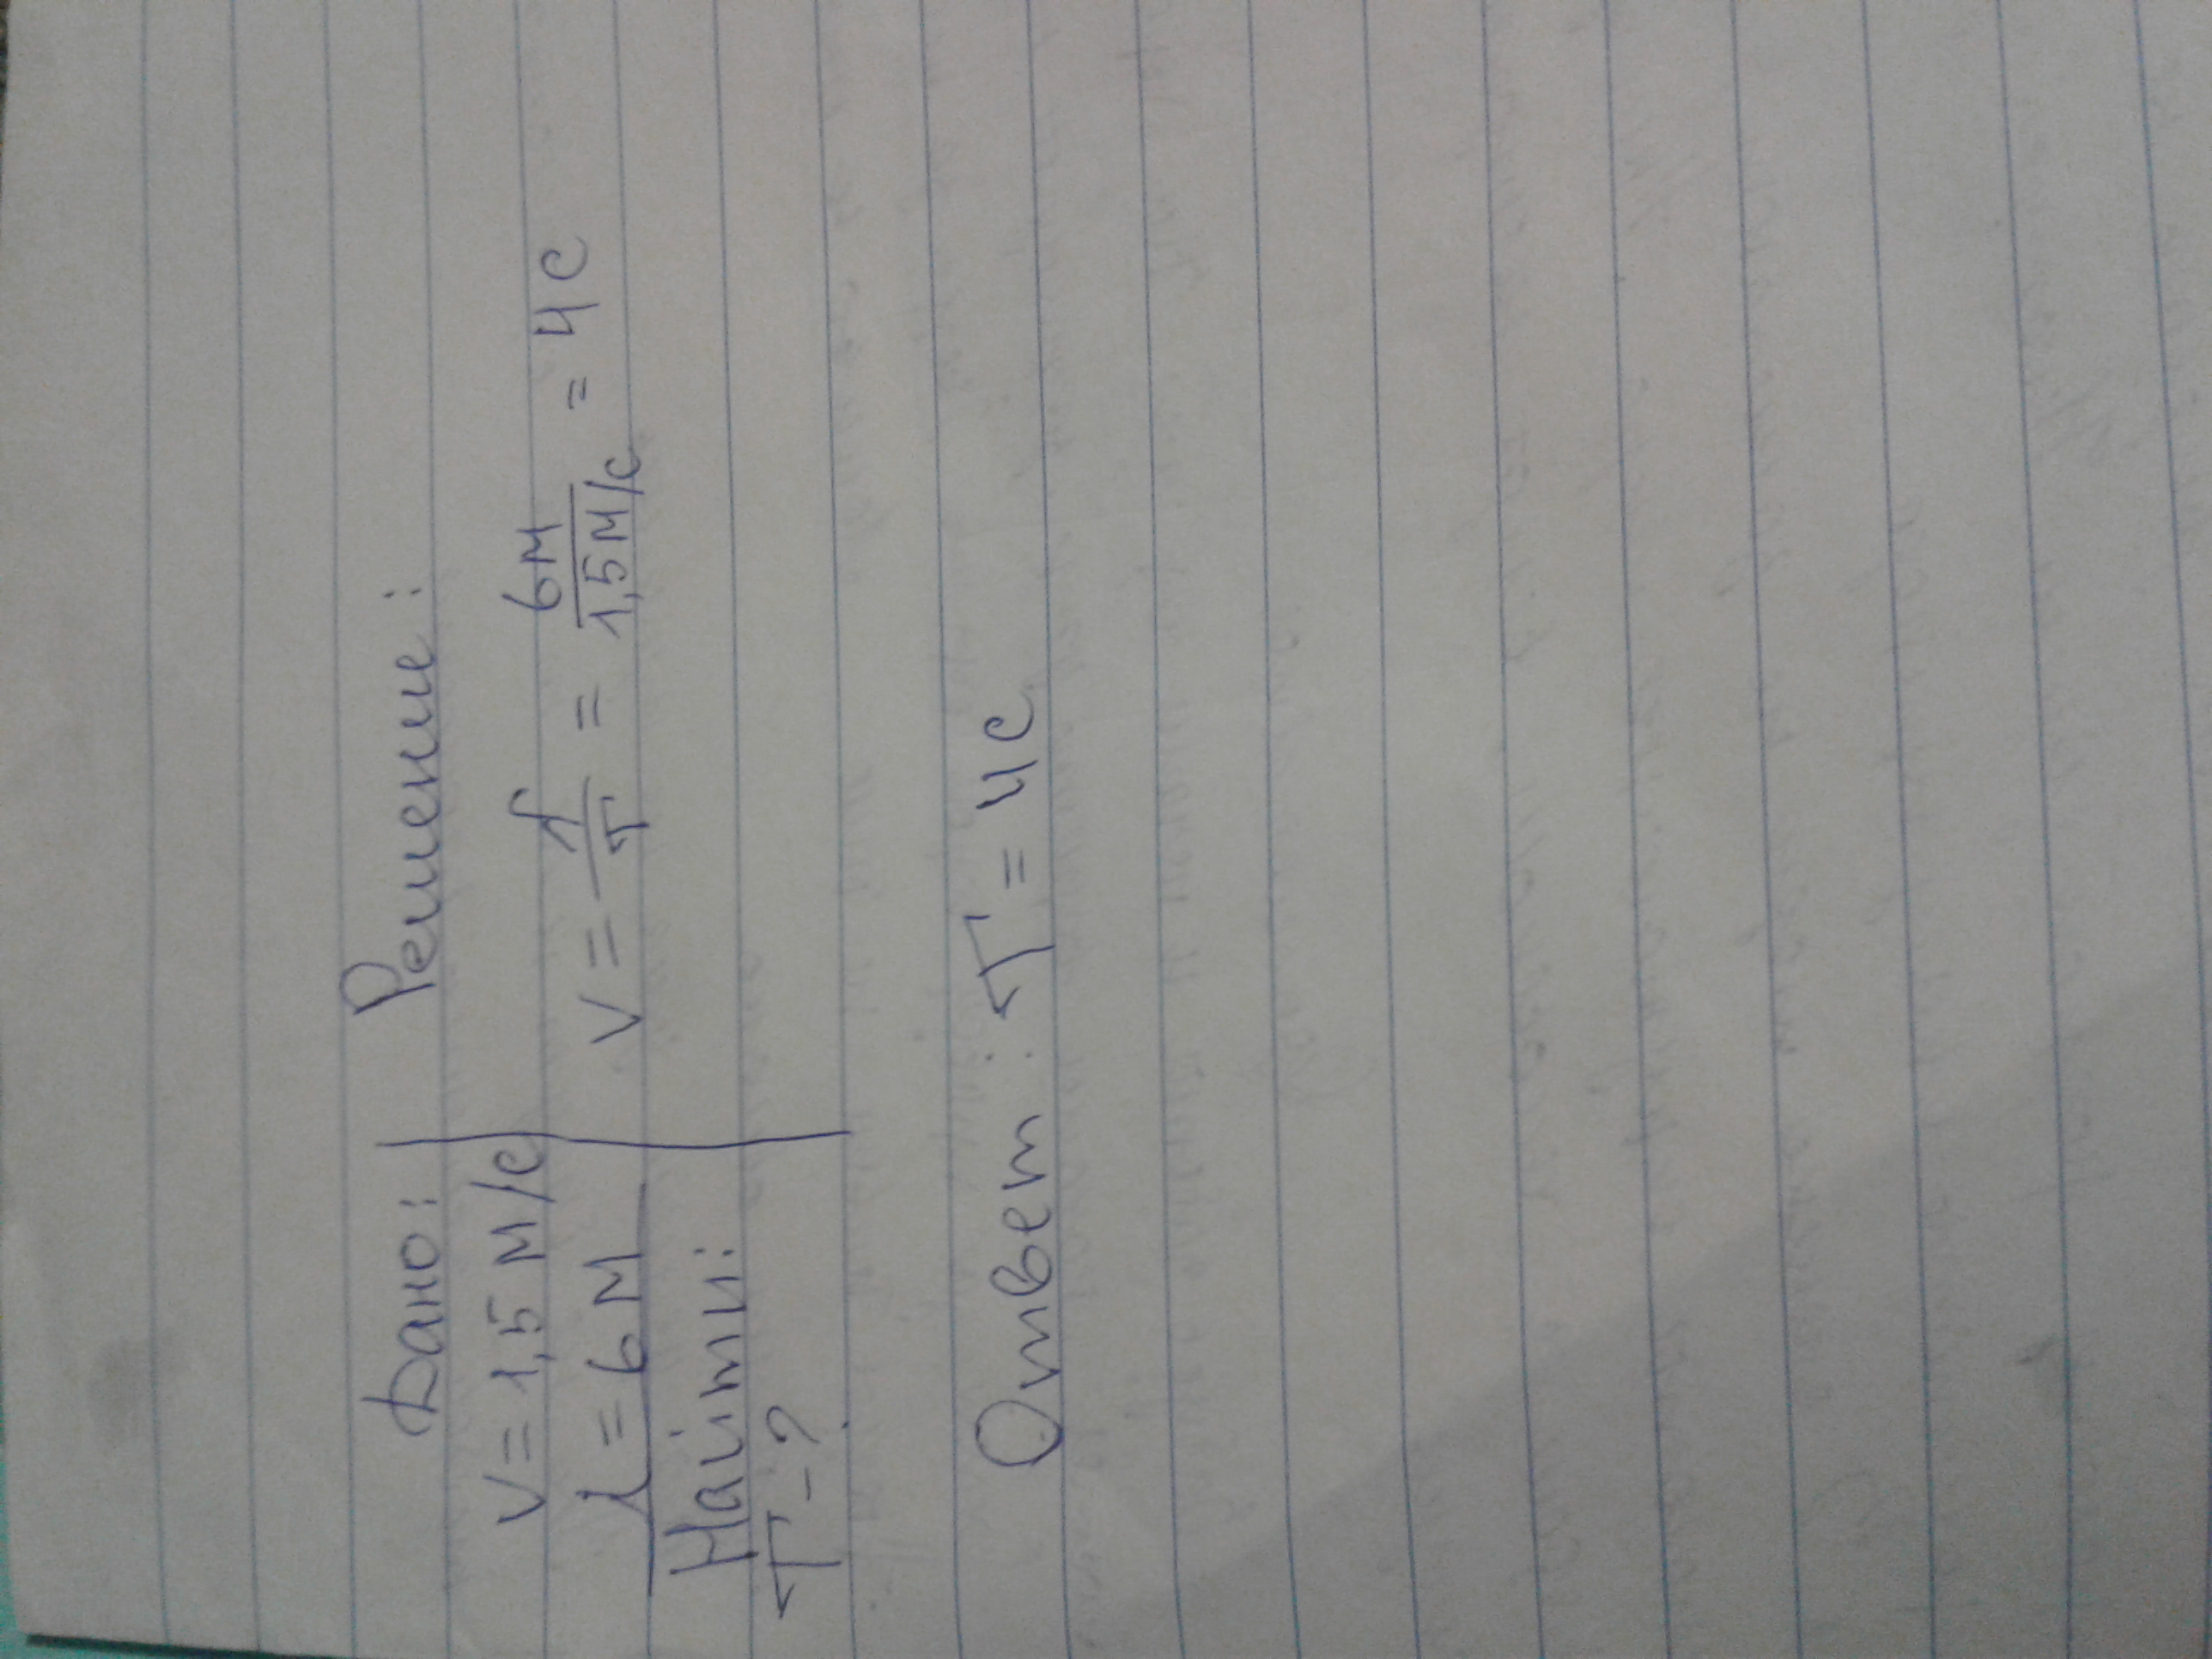 Дано:
V = 1,5 м/с
λ = 6 м
Найти:
T - ?
Решение:
V = λ/T = 6м/1,5м/с = 4 с
Ответ: T = 4с